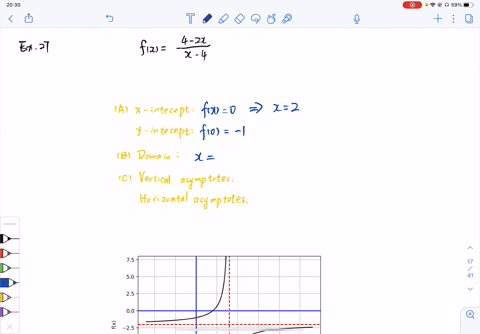 20:30
59%
Ex. 27 f(x) = \frac{4-2x}{x-4}
(A) x-intecept: f(x)=0 ⇒ x=2
y-intecept: f(0)=-1
(B) Domain: x=
(C) Vertical asymptotes.
Horizontal asymptotes.
17
/
41
7.5
5.0
2.5
0.0
-2.5
f(x)